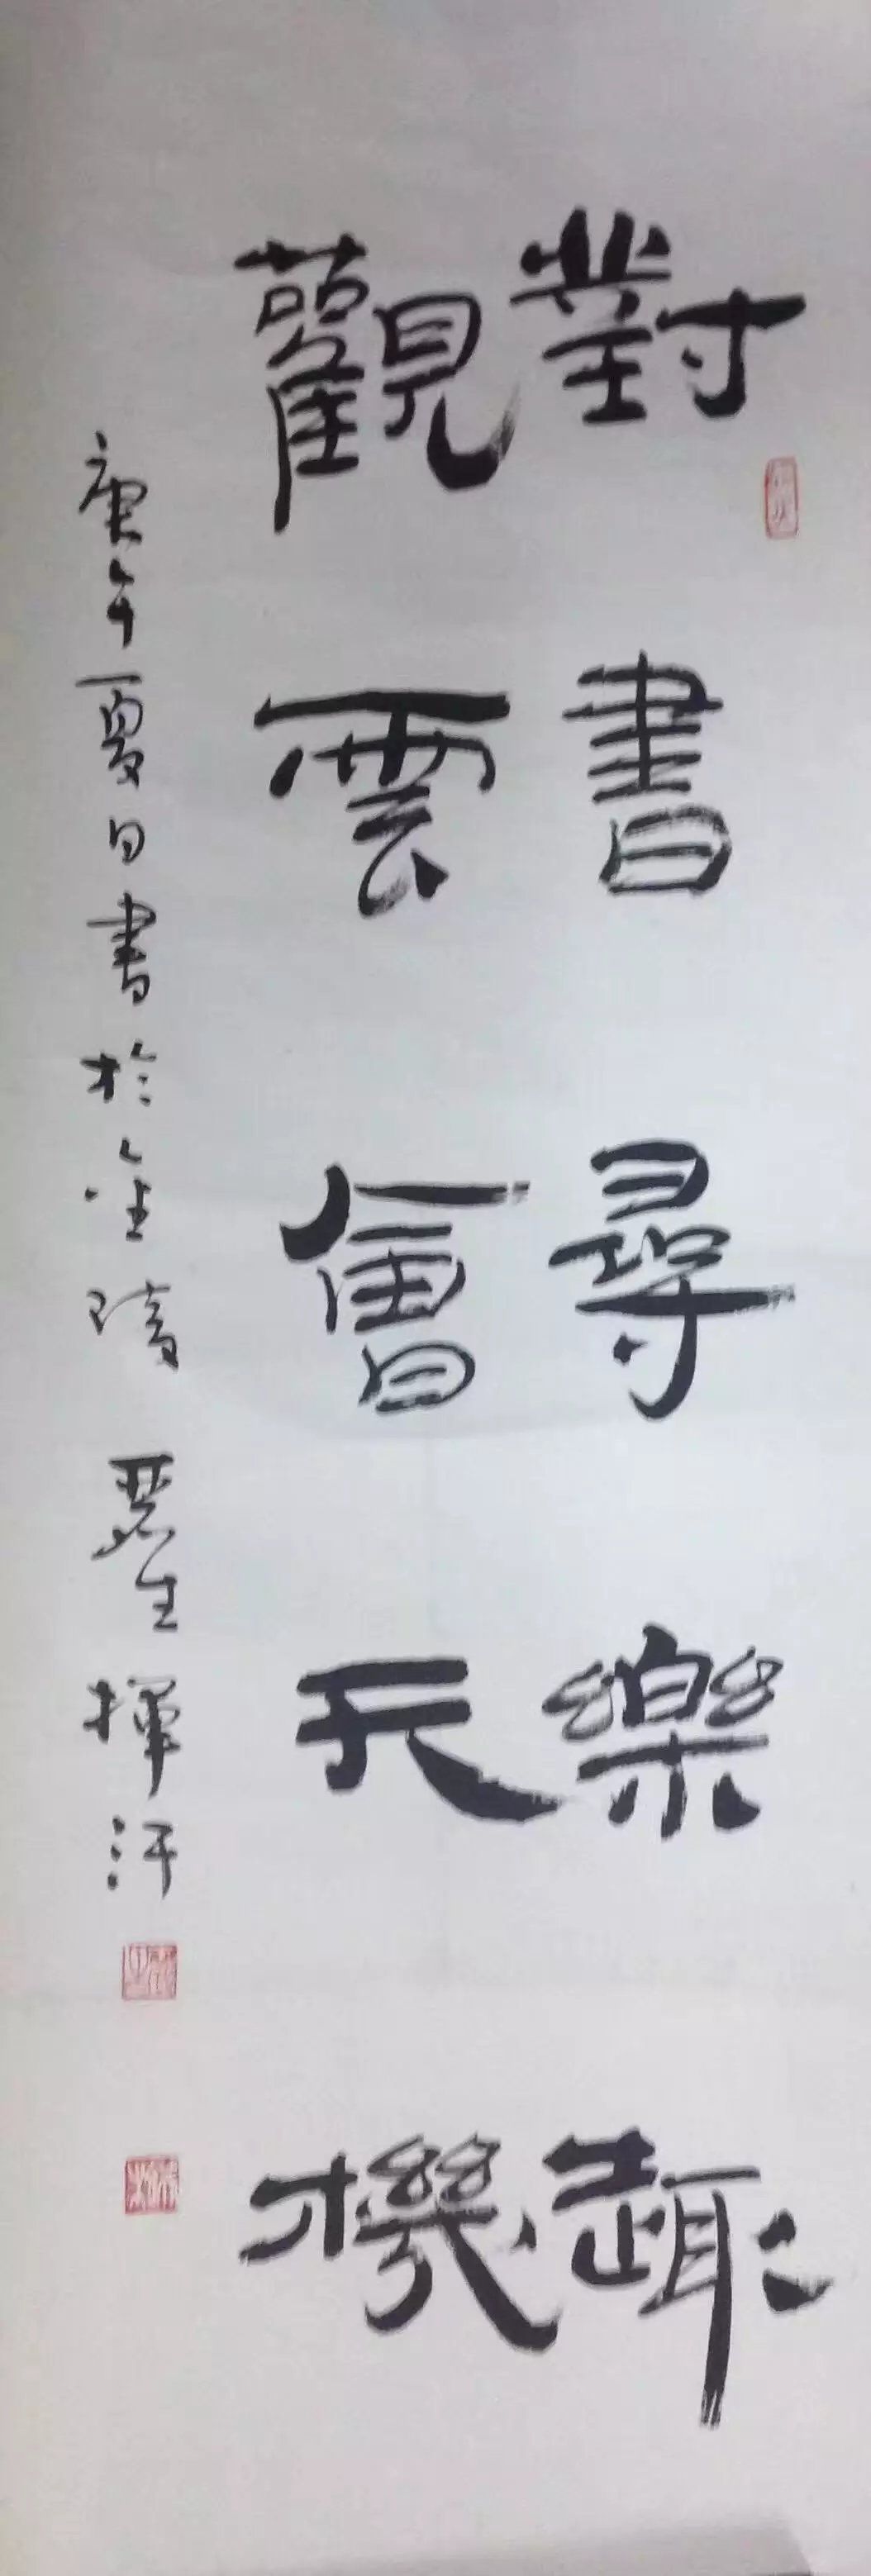 對書尋樂趣
觀雲會天機
庚午夏日書於金陵 惡生揮汗